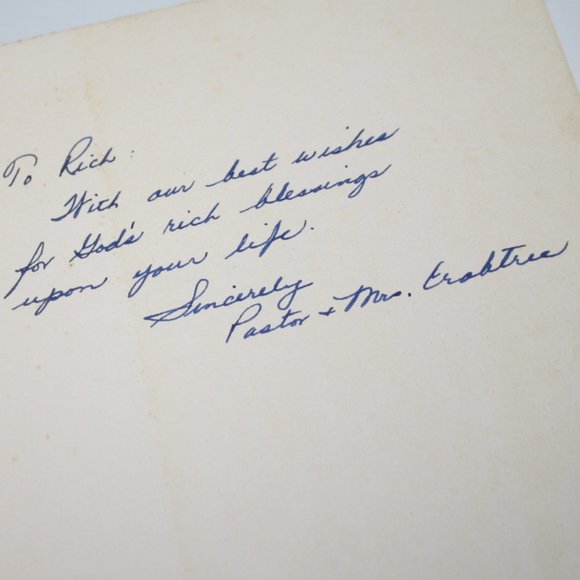 To Rich:
With our best wishes
for God's rich blessings
upon your life.
Sincerely
Pastor + Mrs. Crabtree